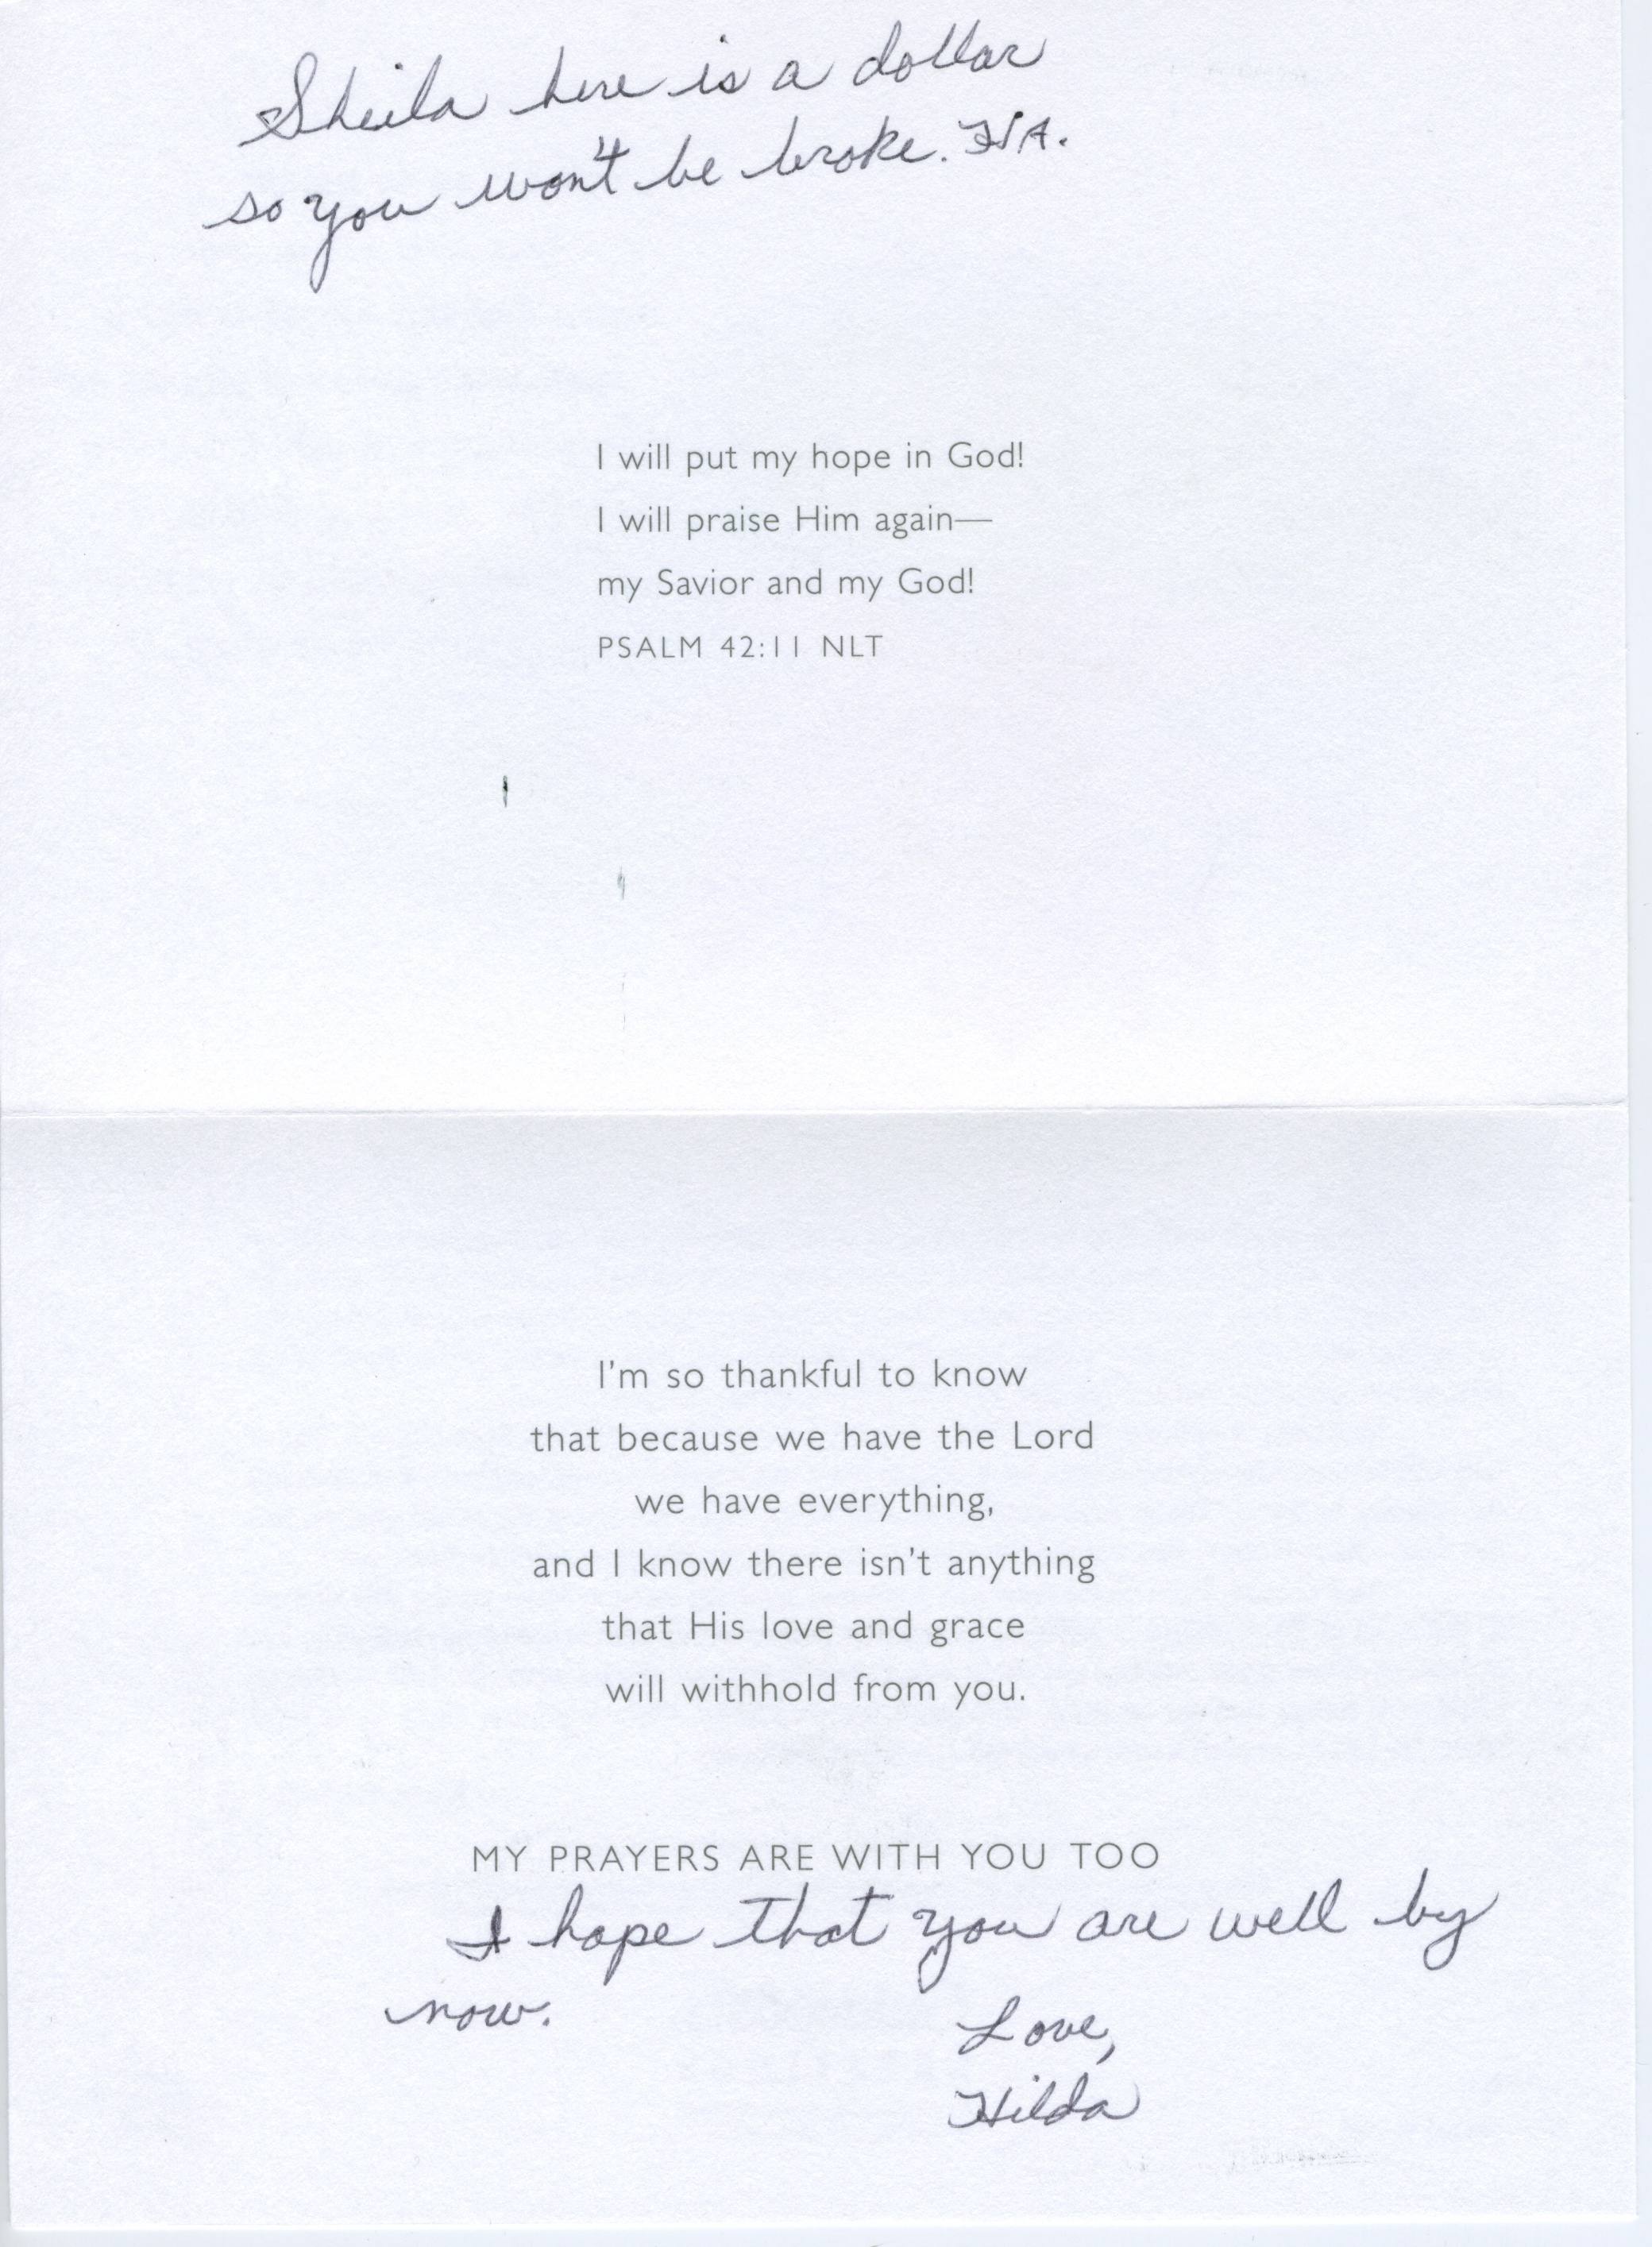 Sheila here is a dollar
so you won't be broke. HA.
I will put my hope in God!
I will praise Him again—
my Savior and my God!
PSALM 42:11 NLT
I'm so thankful to know
that because we have the Lord
we have everything,
and I know there isn't anything
that His love and grace
will withhold from you.
MY PRAYERS ARE WITH YOU TOO
I hope that you are well by
now.
Love,
Hilda